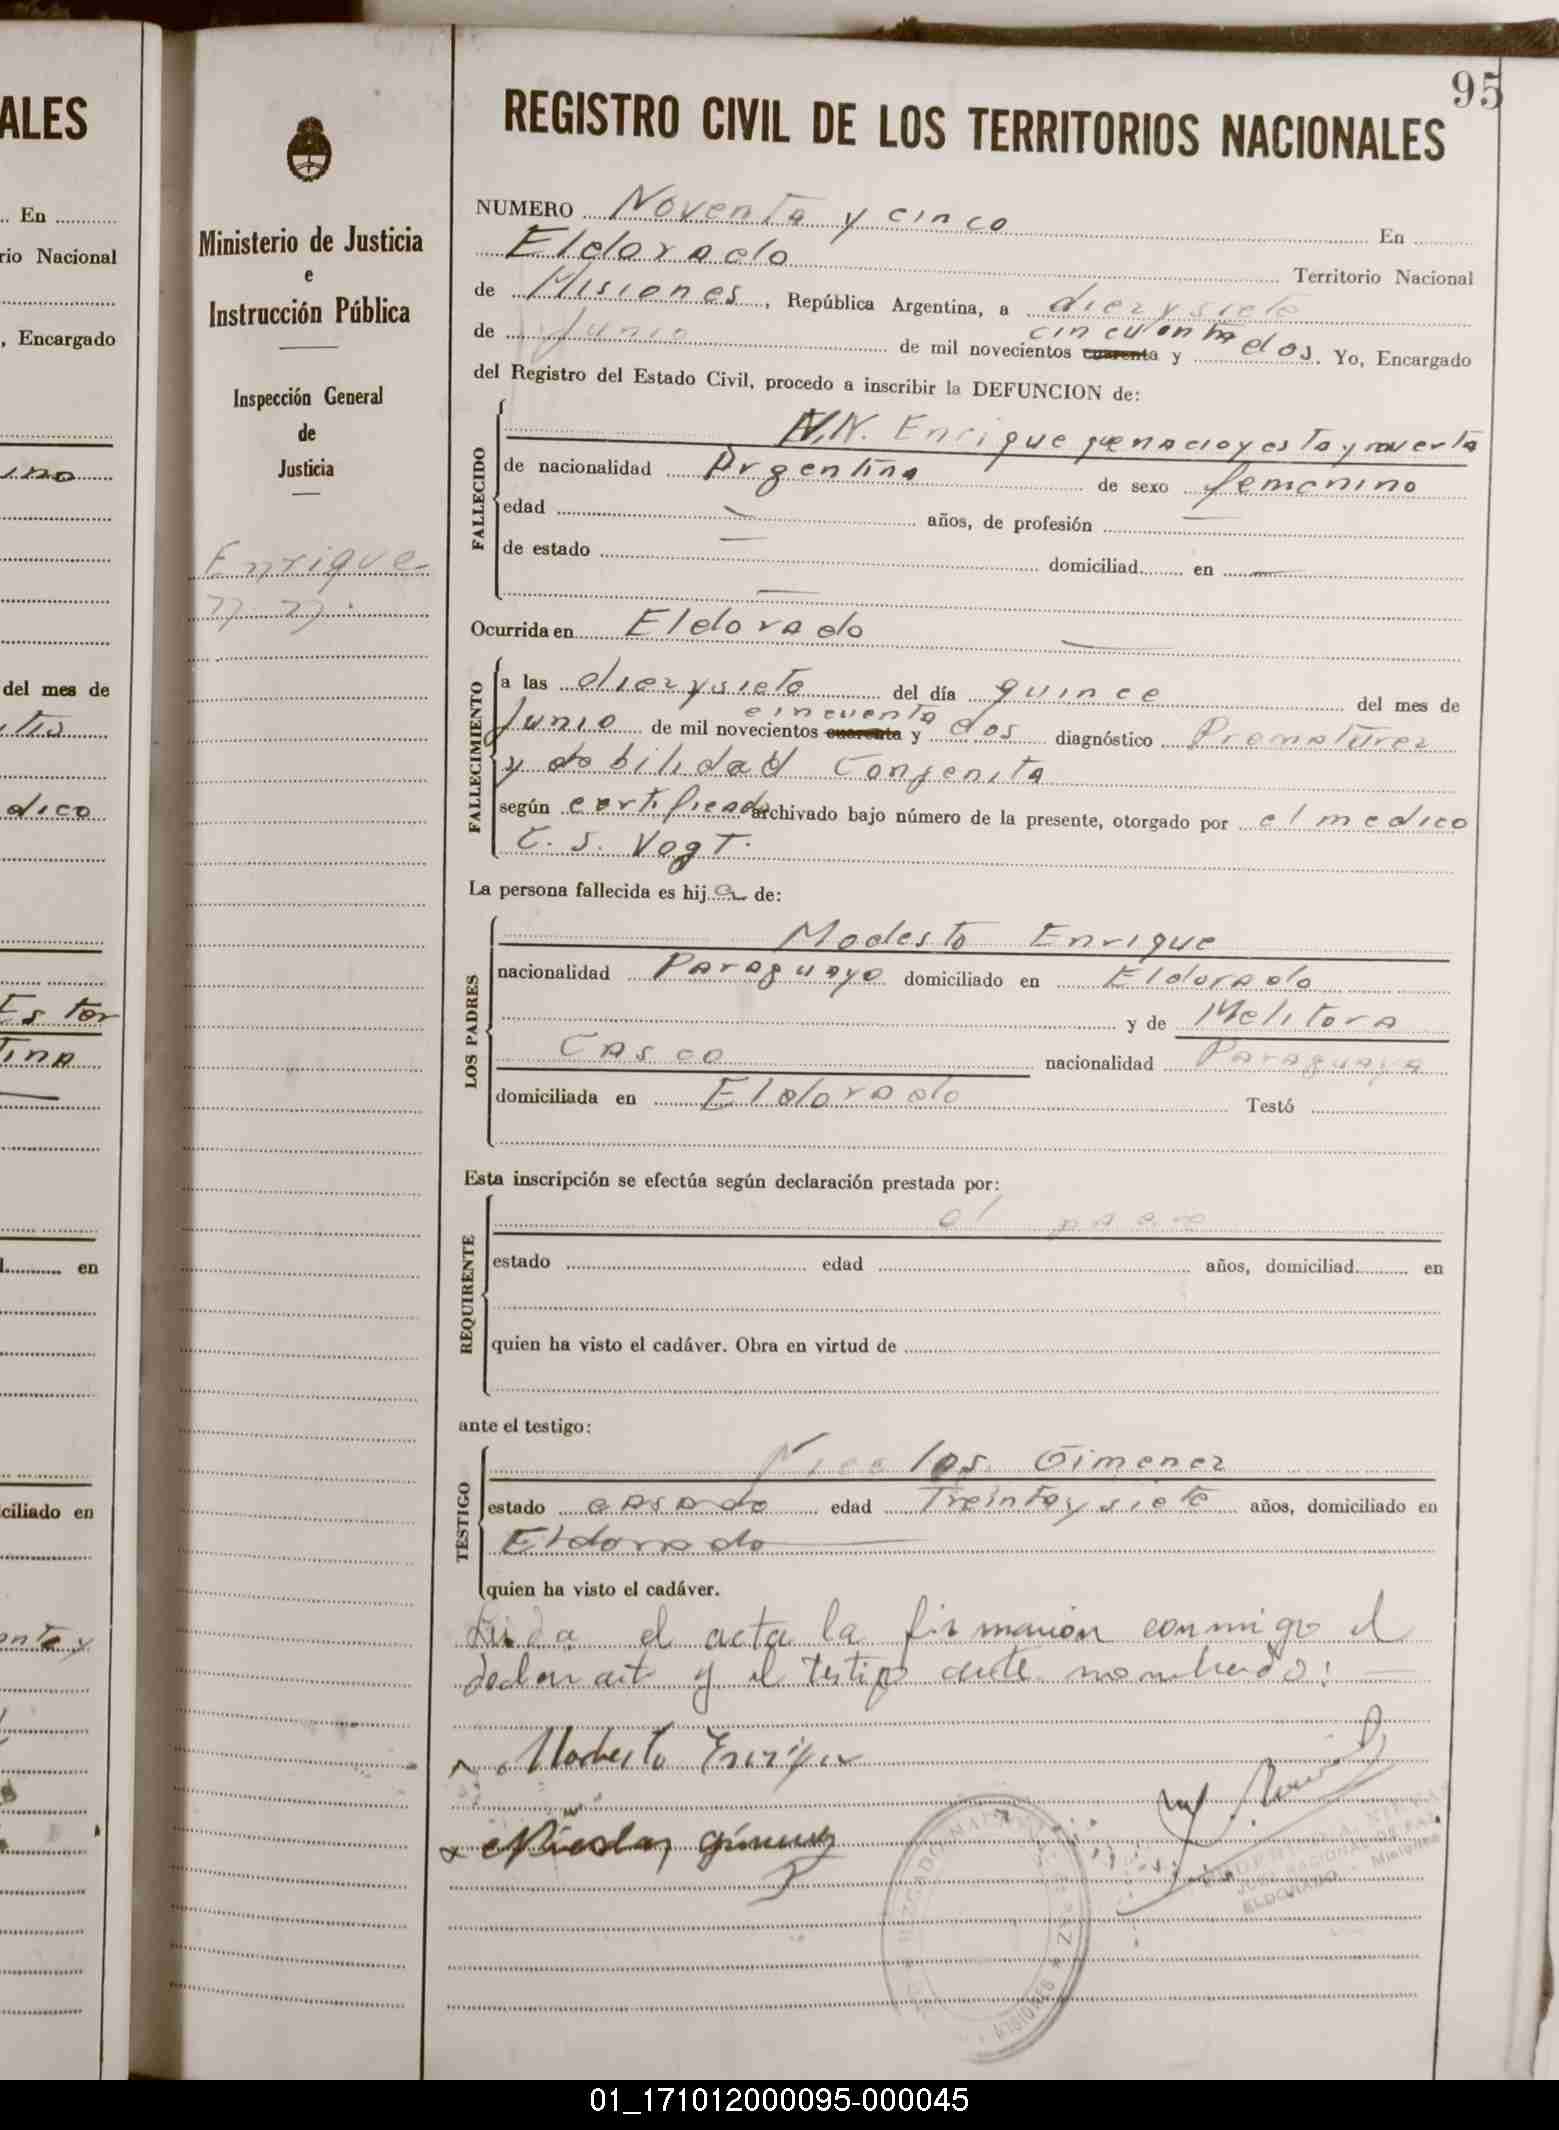 95
REGISTRO CIVIL DE LOS TERRITORIOS NACIONALES
Ministerio de Justicia
e
Instrucción Pública
Inspección General
de
Justicia
Enrique
N. N.
NUMERO Noventa y cinco En
Eldorado Territorio Nacional
de Misiones, República Argentina, a diezysiete
de Junio de mil novecientos cuarenta cincuenta y dos. Yo, Encargado
del Registro del Estado Civil, procedo a inscribir la DEFUNCION de:
FALLECIDO
N.N. Enrique que nacio y esta y muerta
de nacionalidad Argentina de sexo femenino
edad — años, de profesión —
de estado — domiciliad en —
Ocurrida en Eldorado
FALLECIMIENTO
a las diezysiete del día quince del mes de
Junio de mil novecientos cuarenta cincuenta y dos diagnóstico Prematurez
y debilidad Congenita
según certificado archivado bajo número de la presente, otorgado por el medico
C. S. Vogt.
La persona fallecida es hija de:
LOS PADRES
Modesto Enrique
nacionalidad Paraguayo domiciliado en Eldorado
y de Melitora
Casco nacionalidad Paraguaya
domiciliada en Eldorado Testó
Esta inscripción se efectúa según declaración prestada por:
REQUIRENTE
el padre
estado edad años, domiciliad en
quien ha visto el cadáver. Obra en virtud de
ante el testigo:
TESTIGO
Nicolas Gimenez
estado casado edad Treintaysiete años, domiciliado en
Eldorado
quien ha visto el cadáver.
Leida el acta la firmaron conmigo el
declarante y el testigo ante nombrado:
Modesto Enrique
Nicolas Gimenez
ELDORADO - Misiones
ALES
En
rio Nacional
, Encargado
ino
del mes de
dico
Ester
Tina
en
ciliado en
01_171012000095-000045